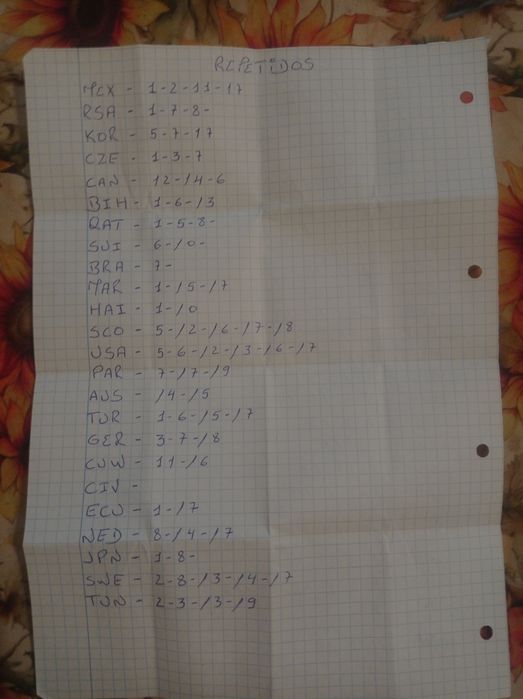 REPETIDOS
MEX - 1-2-11-17
RSA - 1-7-8-
KOR - 5-7-17
CZE - 1-3-7
CAN - 12-14-6
BIH - 1-6-13
QAT - 1-5-8-
SUI - 6-10-
BRA - 7-
MAR - 1-15-17
HAI - 1-10
SCO - 5-12-16-17-18
USA - 5-6-12-13-16-17
PAR - 7-17-19
AUS - 14-15
TUR - 1-6-15-17
GER - 3-7-18
CUW - 11-16
CIV -
ECU - 1-17
NED - 8-14-17
JPN - 1-8-
SWE - 2-8-13-14-17
TUN - 2-3-13-19